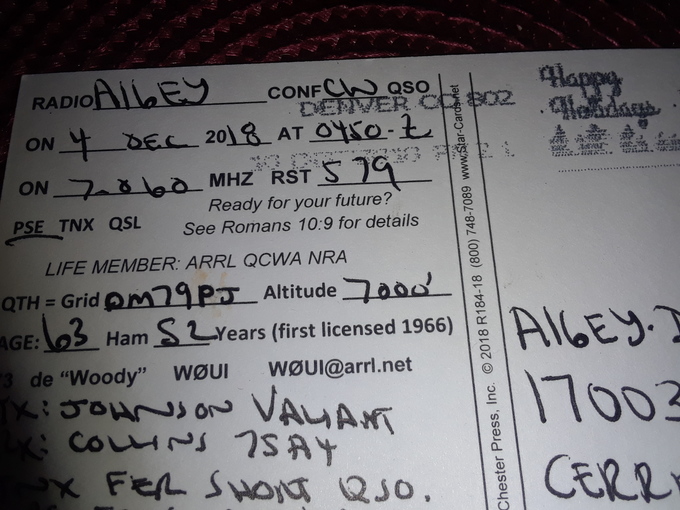 RADIO AI6EY CONF CW QSO
DENVER CO 802
ON 4 DEC 2018 AT 0450-Z
ON 7.060 MHZ RST 579
Ready for your future?
PSE TNX QSL See Romans 10:9 for details
LIFE MEMBER: ARRL QCWA NRA
QTH = Grid DM79PJ Altitude 7000'
AGE: 63 Ham 52 Years (first licensed 1966)
73 de “Woody” WØUI WØUI@arrl.net
TX: JOHNSON VALIANT
RX: COLLINS 75A4
TNX FER SHORT QSO.
Chester Press, Inc. © 2018 R184-18 (800) 748-7089 www.Star-Cards.net
Happy
Holidays
AI6EY.
17003
CERR